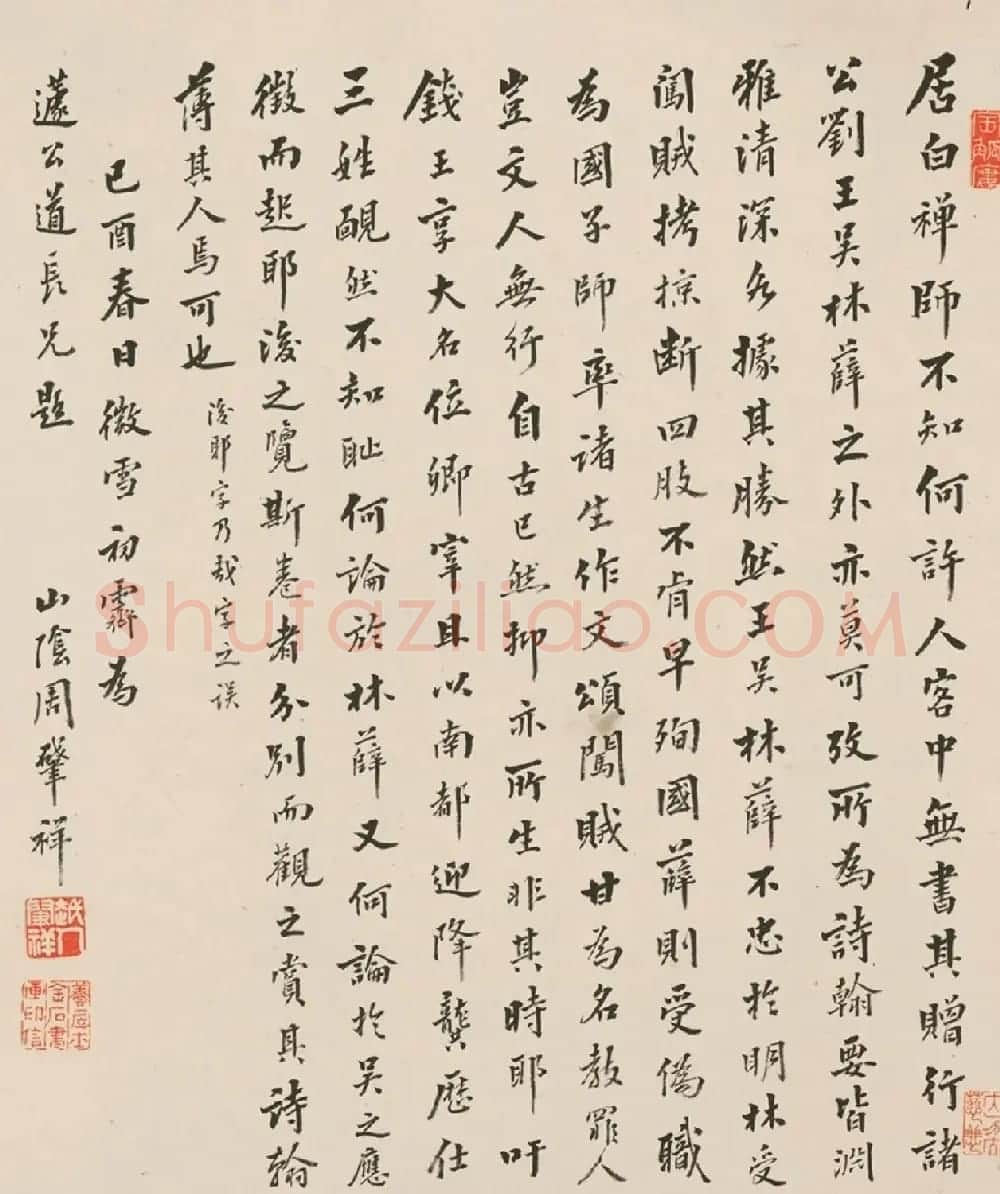 居白禅師不知何許人客中無書其贈行諸
公劉王吴林薛之外亦莫可攷所為詩翰要皆淵
雅清深各據其勝然王吴林薛不忠於明林受
闖賊拷掠断四肢不肯早殉國薛則受偽職
為國子師率諸生作文頌闖賊甘為名教罪人
豈文人無行自古已然抑亦所生非其時耶吁
錢王享大名位卿宰且以南都迎降龔歷仕
三姓靦然不知耻何論於林薛又何論於吴之應
徵而起耶後之覽斯卷者分別而觀之賞其詩翰
薄其人焉可也 後耶字乃哉字之误
己酉春日微雪初霽為
蘧公道長兄題 山陰周肇祥
Shufaziliao.COM
周肇祥